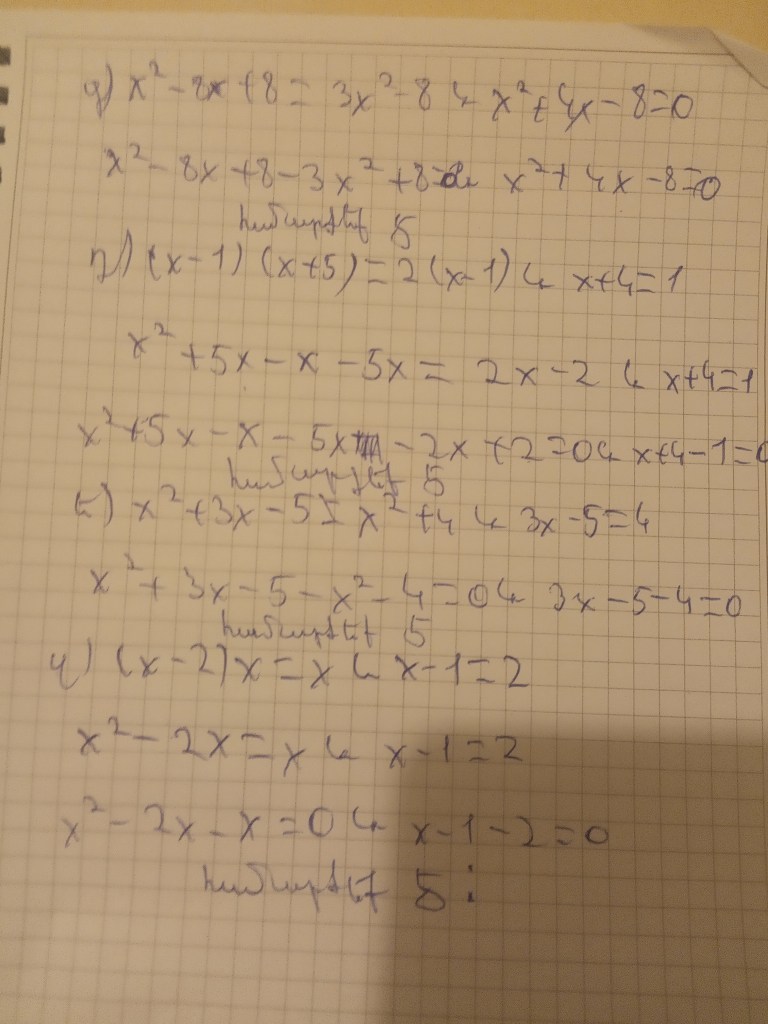 գ) x² - 8x + 8 = 3x² - 8 և x² + 4x - 8 = 0
x² - 8x + 8 - 3x² + 8 = 0 և x² + 4x - 8 = 0
դ) (x-1) (x+5) = 2(x-1) և x+4=1
x² + 5x - x - 5x = 2x - 2 և x+4=1
x² + 5x - x - 5x - 2x + 2 = 0 և x+4-1=0
ե) x² + 3x - 5 = x² + 4 և 3x - 5 = 4
x² + 3x - 5 - x² - 4 = 0 և 3x - 5 - 4 = 0
զ) (x-2)x = x և x-1=2
x² - 2x = x և x-1=2
x² - 2x - x = 0 և x-1-2=0